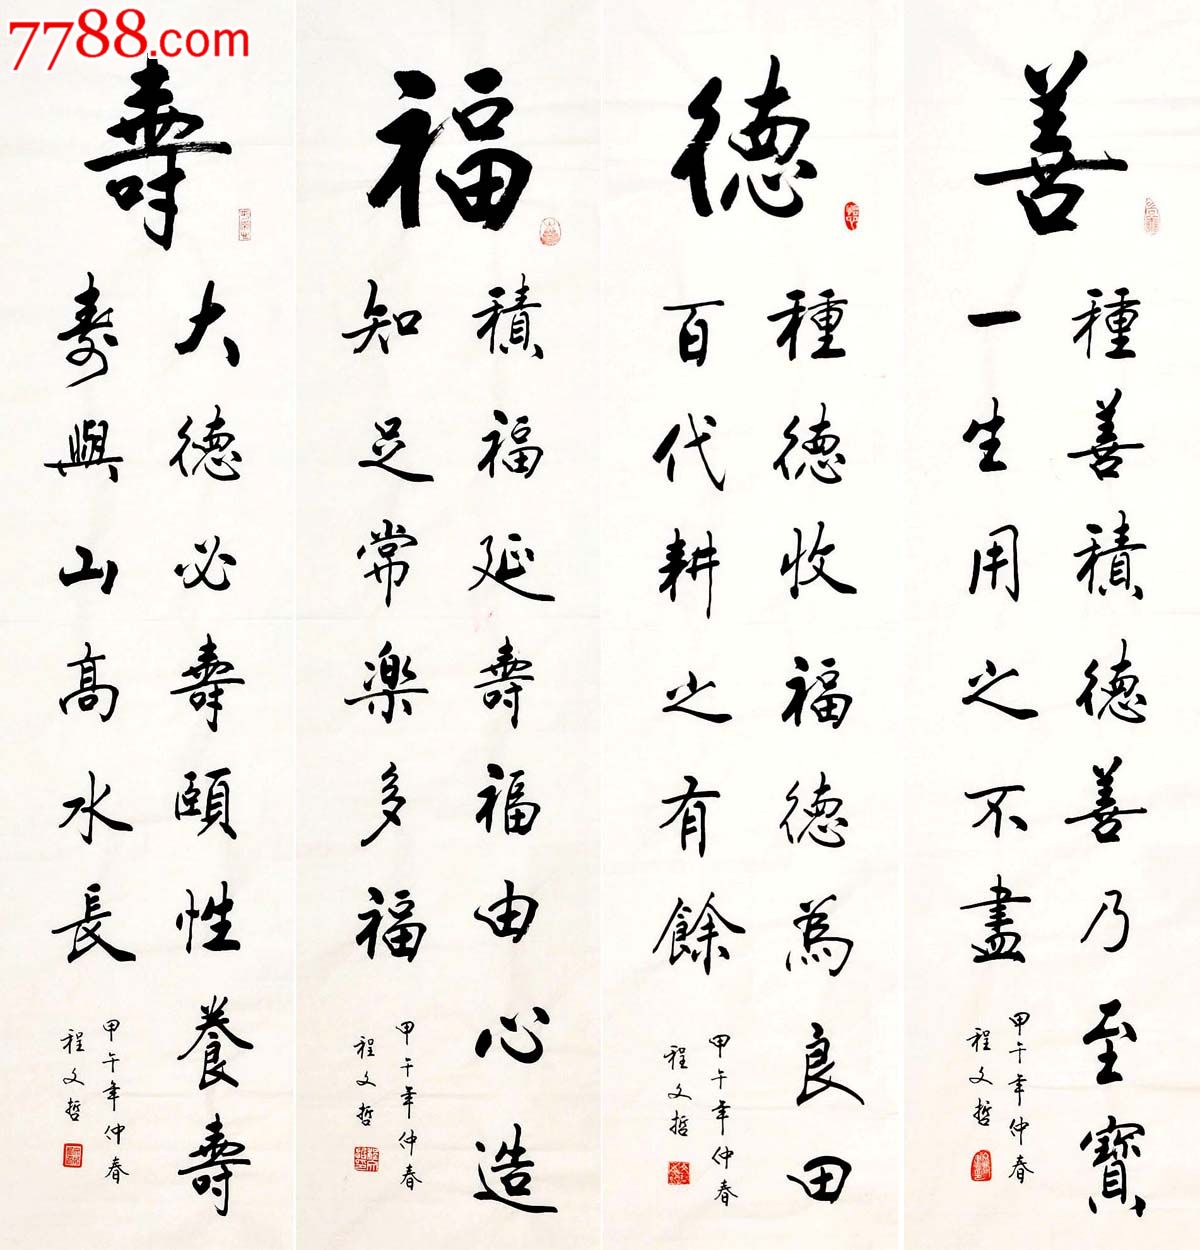 7788.com
善
種善積德善乃至寶
一生用之不盡
甲午年仲春
程文哲
德
種德收福德為良田
百代耕之有餘
甲午年仲春
程文哲
福
積福延壽福由心造
知足常樂多福
甲午年仲春
程文哲
壽
大德必壽頤性養壽
壽與山高水長
甲午年仲春
程文哲